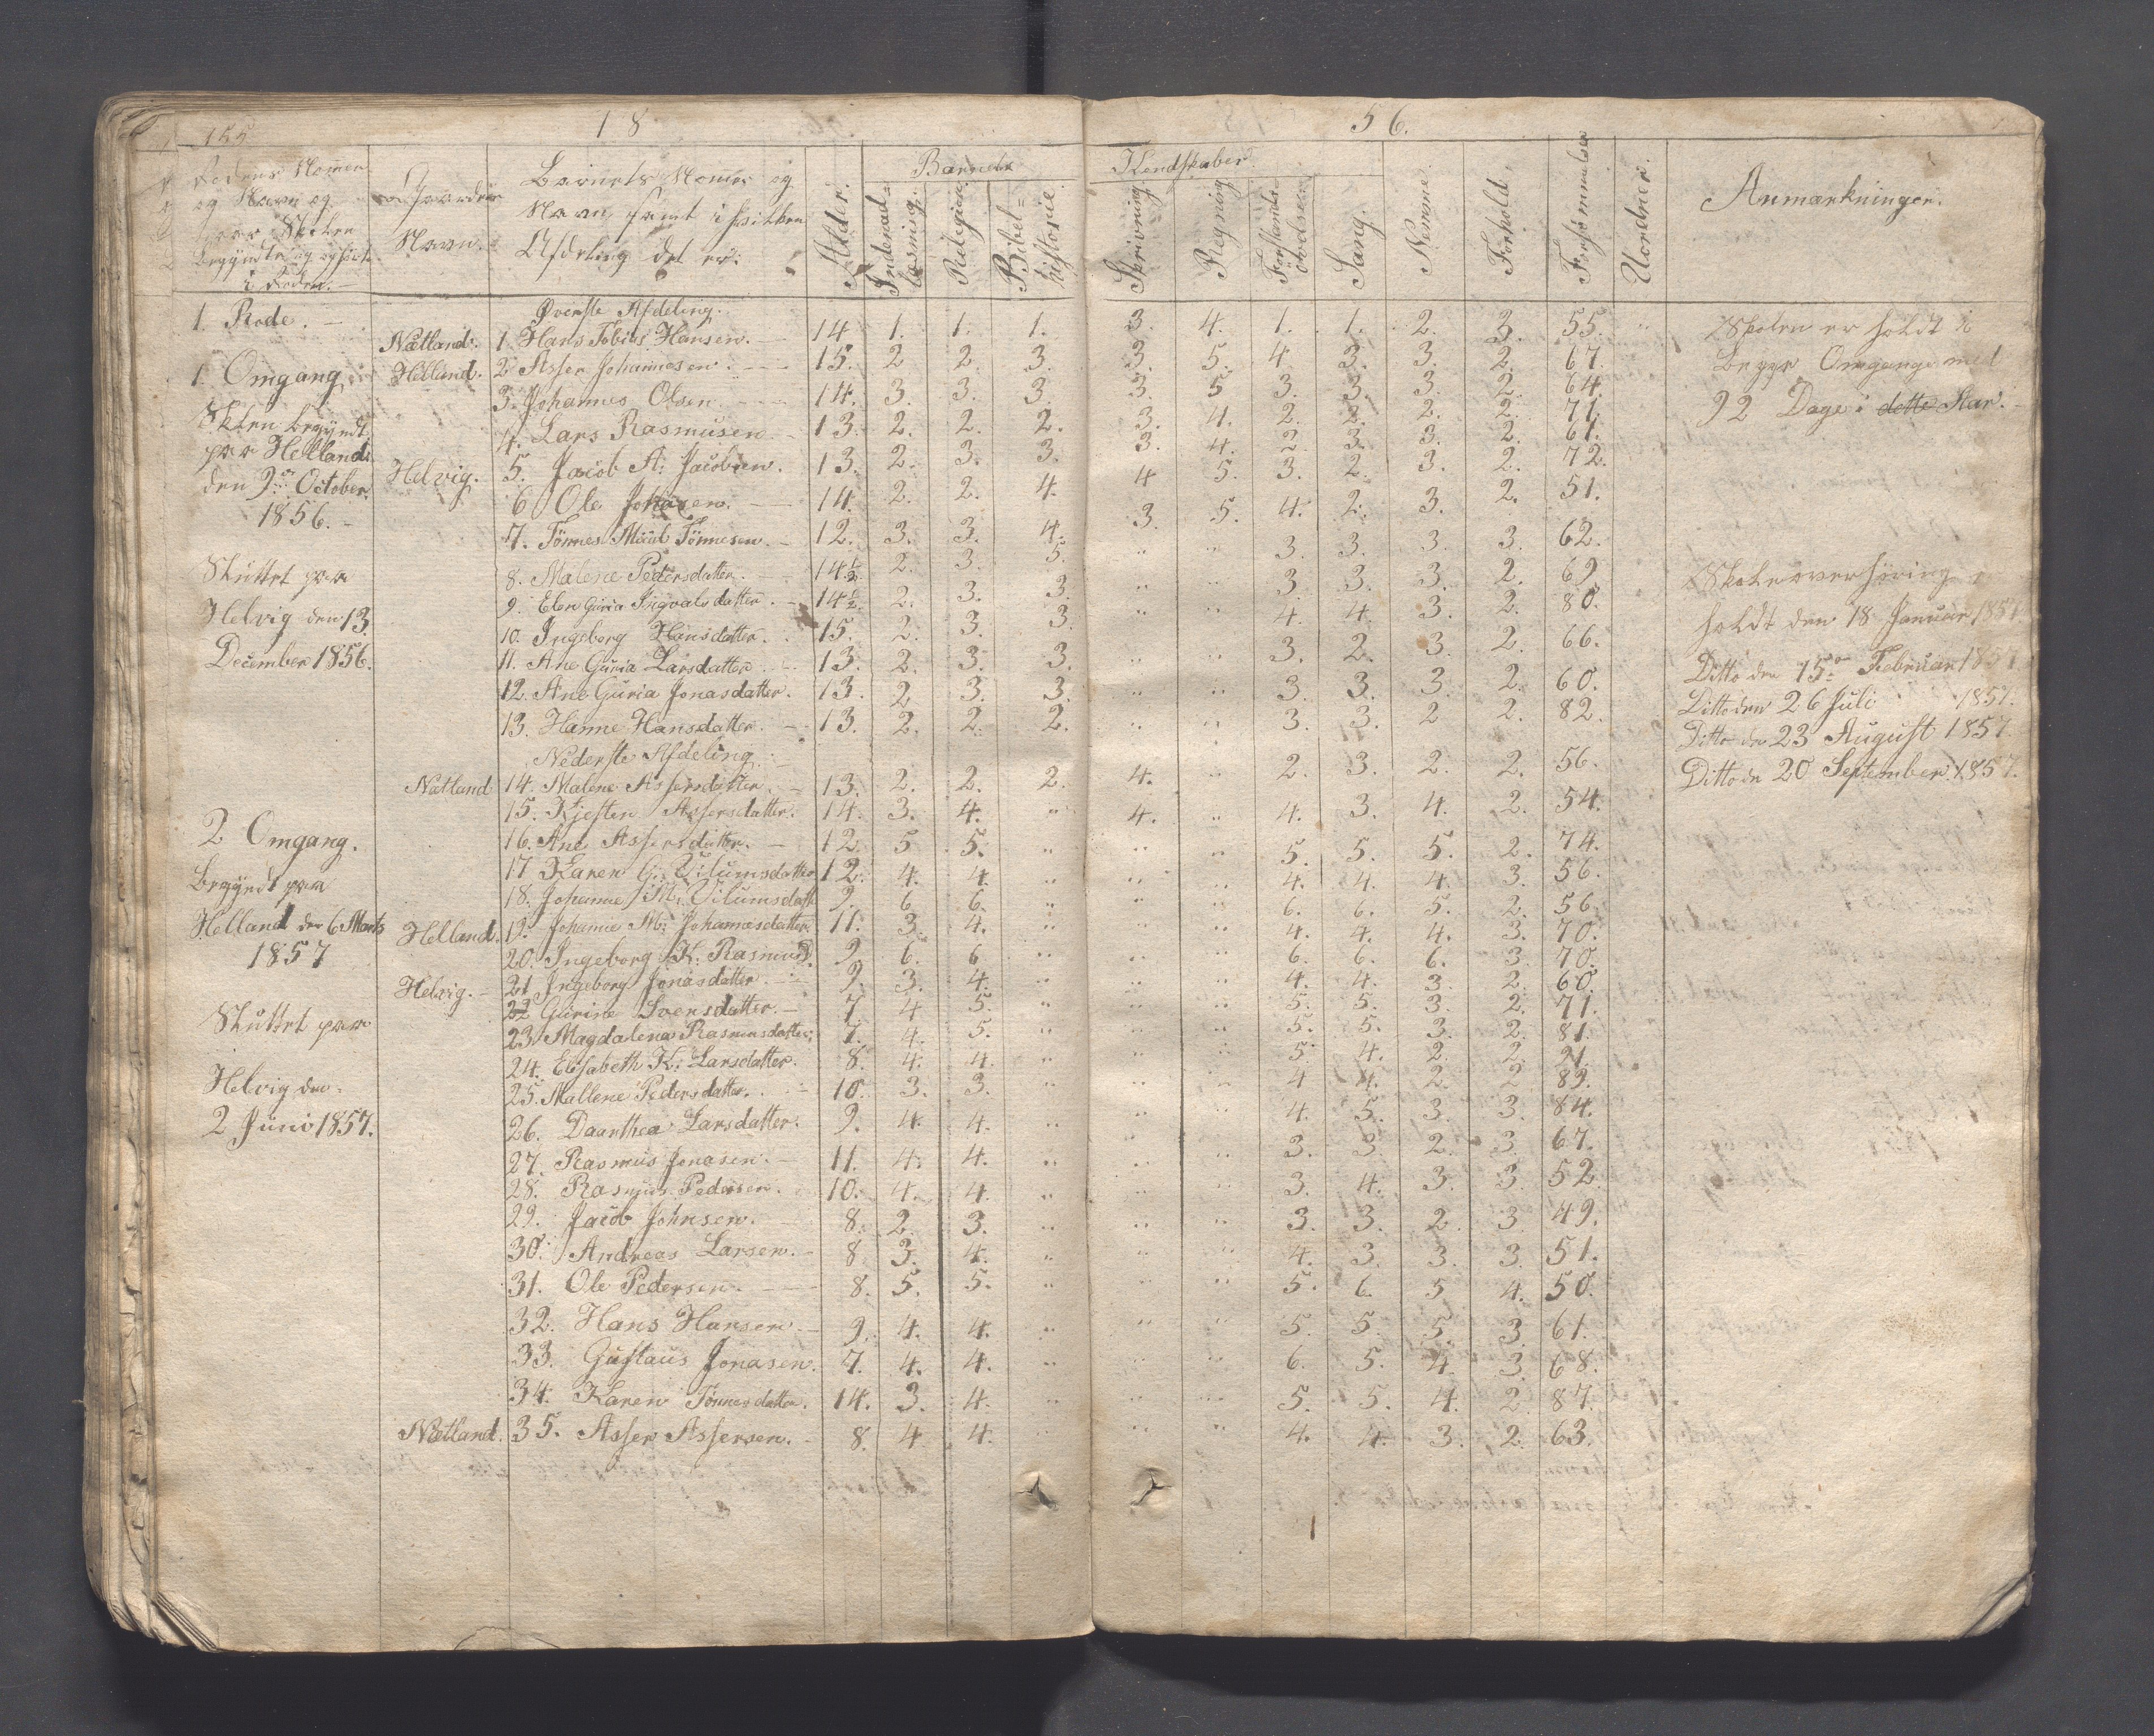 155 18 56.
Rodens Nomer og Navn og naar Skolen begyndte og ophørte i Roden.
Gaardens Navn.
Barnets Nomer og Navn samt i hvilken Afdeling det er:
Alder.
Barnets Kundskaber.
Indenad-læsning.
Religion.
Bibel=historie
Skrivning
Regning
Forstands övelse
Sang.
Nemme
Forhold.
Forsömmelser
Uorden.
Anmærkninger.
1. Rode.
Øverste Afdeling.
Nætland. 1. Hans Tobias Hansen. 14 1. 1. 1. 3. 4. 1. 1. 2. 3. 55.
Helland. 2 Asser Johannesen. 15. 2 2. 3. 3. 5. 4. 3. 3. 2. 67.
3. Johannes Olsen. 14. 3. 3. 3. 3. 5 3. 3. 3. 2. 64.
4. Lars Rasmusen. 13. 2. 2. 2. 3. 4. 2. 2. 2. 2. 71.
Helvig. 5. Jacob A: Jacobsen. 13. 2. 3. 3. 3. 4. 2. 3. 3. 2. 61.
6 Ole Johnsen. 14. 2. 2. 4. 4 5. 3. 2. 3. 2. 72.
7. Tönnes Tönnesen. 12. 3. 3. 4. 3. 5. 4. 2. 3. 2. 51.
8. Malene Pedersdatter. 14½. 2. 3. 5. " " 3. 3. 3. 3. 62.
9. Elen Guria Ingvalsdatter. 14½. 2. 3. 3. " " 3. 3. 3. 2. 69
10. Ingeborg Hansdatter. 15. 2. 3. 3. " " 4. 4. 3. 2. 80.
11. Ane Guria Larsdatter. 13. 2. 3. 3. " " 3. 2. 3. 2. 66.
12. Ane Guria Jonasdatter. 13. 2 3. 3. " " 3. 3. 3. 2. 60.
13. Hanne Hansdatter. 13. 2. 2. 2. " " 3. 3. 2 2. 82.
Nederste Afdeling.
Nætland 14. Malene Assersdatter. 13. 2. 2. 2. 4. " 2. 3. 2. 2. 56.
15. Kjesten Assersdatter. 14. 3. 4. " 4. " 4. 3. 4. 2. 54.
16. Ane Assersdatter. 12 5 5. " " " 5. 5. 5. 2. 74.
17 Karen G: Vilumsdatter 12. 4. 4. " " " 4. 4. 4. 3. 56.
18. Johanne M: Vilumsdatt 9. 6. 6. " " " 6. 6. 5. 2. 56.
Helland. 19. Johanne M: Johannesdatter. 11. 3. 4. " " " 4. 4. 4. 3. 70.
20. Ingeborg K: Rasmusd. 9 6. 6 " " " 6. 6. 6. 3. 70.
Helvig. 21 Ingeborg Jonasdatter. 9. 3. 4. " " " 4. 4. 3. 2. 60.
22 Gurine Svensdatter. 7. 4 5. " " " 5. 5. 3. 2. 71.
23. Magdalena Rasmusdatter. 7. 4. 5. " " " 5. 5. 3. 2. 81.
24. Elisabeth K: Larsdatter. 8. 4. 4. " " " 5. 4. 2. 2. 21.
25. Mallene Pedersdatter. 10. 3. 3. " " " 4 4. 2. 2 89.
26. Daarthea Larsdatter. 9. 4. 4. " " " 4. 5. 3. 3. 84.
27. Rasmus Jonasen. 11. 4. 4. " " " 3. 3. 2. 3. 67.
28. Rasmus Pedersen. 10. 4. 4. " " " 3. 4. 3. 3. 52.
29. Jacob Johnsen. 8. 2. 3. " " " 3. 3. 2. 3 49.
30. Andreas Larsen. 8 3. 4. " " " 4. 3. 3. 3. 51.
31. Ole Pedersen. 8. 5. 5. " " " 5. 6. 5 4. 50.
32. Hans Hansen. 9. 4. 4. " " " 5. 5. 5. 3. 61.
33. Gustaus Jonasen. 7. 4. 4. " " " 6. 5. 4. 3. 68.
34. Karen Tönnesdatter. 14. 3. 4. " " " 5. 5. 4. 2. 87.
Nætland. 35. Asser Assersen. 8. 4 4. " " " 4. 4. 3. 2. 63.
1. Omgang
Skolen begyndt
paa Helland
den 9de October
1856.
Sluttet paa
Helvig den 13.
December 1856.
2 Omgang.
begyndt paa
Helland den 6 Marts
1857
Sluttet paa
Helvig den
2 Juni 1857.
Skolen er holdt i
begge Omgange med
92 Dage i dette Aar.
Skoleoverhöring
holdt den 18 Januar 1857
Ditto den 15de Februar 1857
Ditto den 26 Juli 1857.
Ditto den 23 August 1857.
Ditto den 20 September 1857.